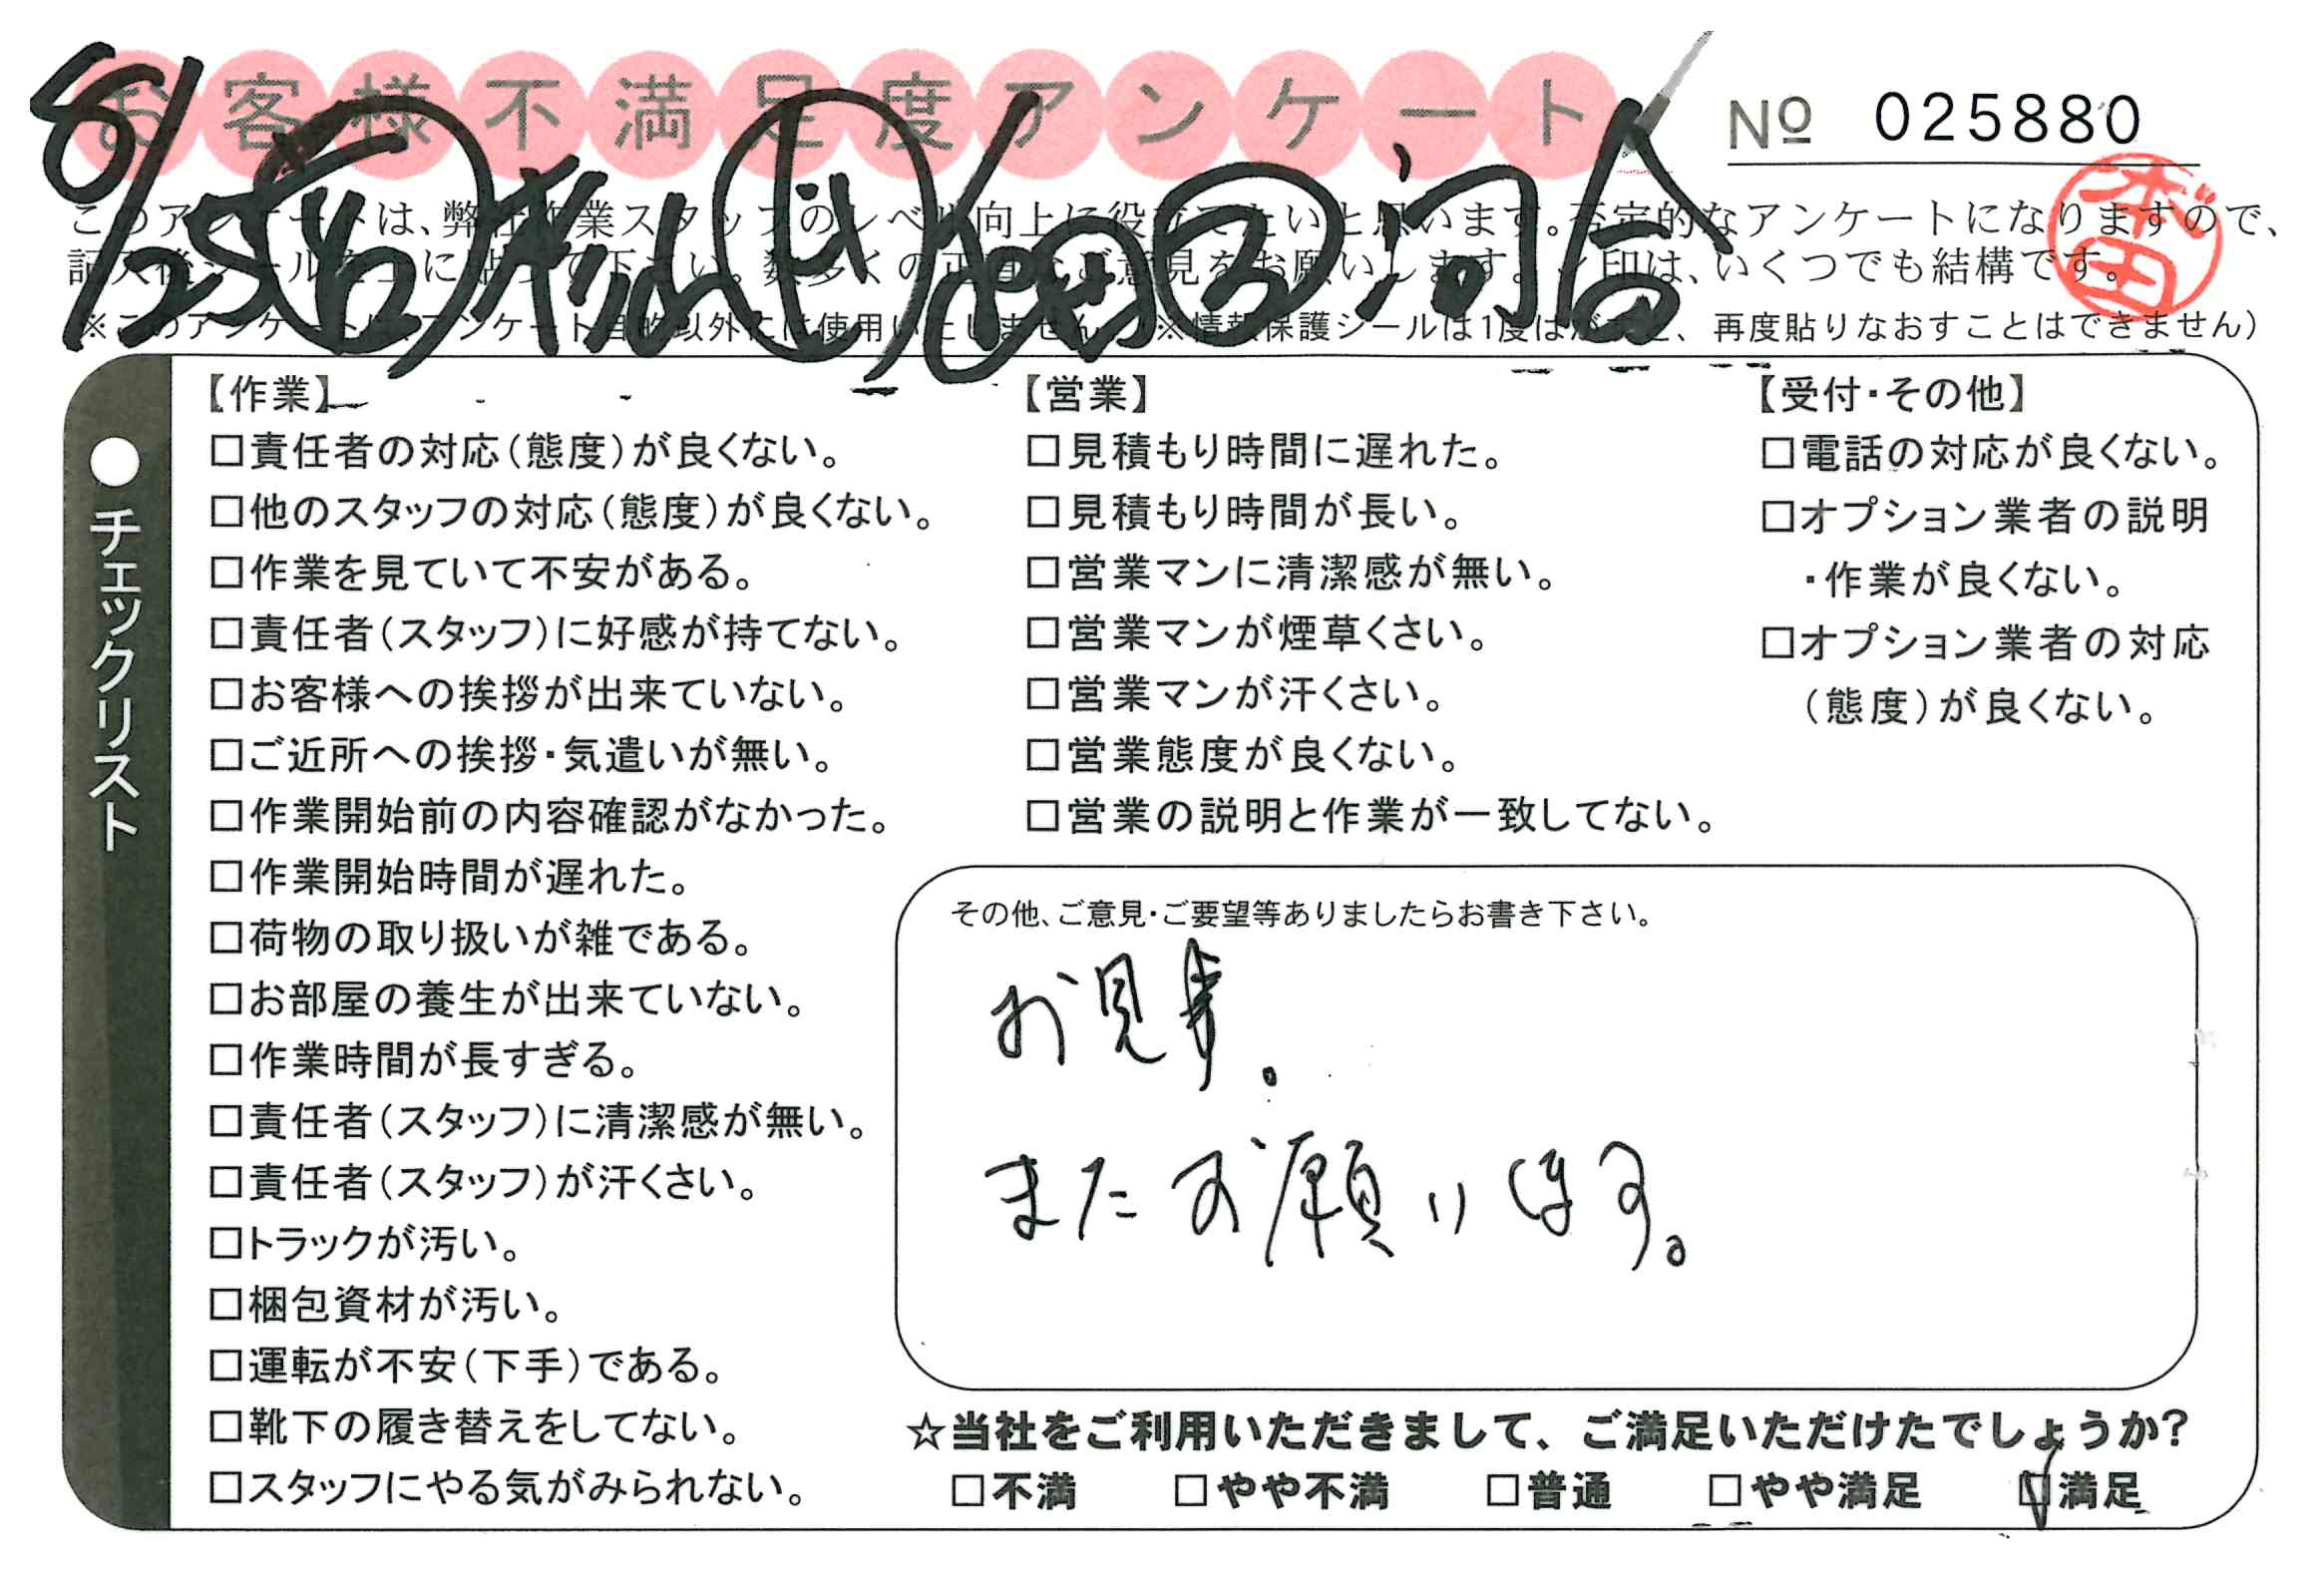 お客様不満足度アンケート
№ 025880
8/25 松山 池田 河合
本田
このアンケートは、弊社作業スタッフのレベル向上に役立てたいと思います。否定的なアンケートになりますので、
記入後シールを上に貼って下さい。数多くの正直なご意見をお願いします。レ印は、いくつでも結構です。
※このアンケートは、アンケート目的以外には使用いたしません。 ※情報保護シールは1度はがすと、再度貼りなおすことはできません）
●チェックリスト
【作業】
□責任者の対応（態度）が良くない。
□他のスタッフの対応（態度）が良くない。
□作業を見ていて不安がある。
□責任者（スタッフ）に好感が持てない。
□お客様への挨拶が出来ていない。
□ご近所への挨拶・気遣いが無い。
□作業開始前の内容確認がなかった。
□作業開始時間が遅れた。
□荷物の取り扱いが雑である。
□お部屋の養生が出来ていない。
□作業時間が長すぎる。
□責任者（スタッフ）に清潔感が無い。
□責任者（スタッフ）が汗くさい。
□トラックが汚い。
□梱包資材が汚い。
□運転が不安（下手）である。
□靴下の履き替えをしてない。
□スタッフにやる気がみられない。
【営業】
□見積もり時間に遅れた。
□見積もり時間が長い。
□営業マンに清潔感が無い。
□営業マンが煙草くさい。
□営業マンが汗くさい。
□営業態度が良くない。
□営業の説明と作業が一致してない。
【受付・その他】
□電話の対応が良くない。
□オプション業者の説明
・作業が良くない。
□オプション業者の対応
（態度）が良くない。
その他、ご意見・ご要望等ありましたらお書き下さい。
お見事。
またお願いします。
☆当社をご利用いただきまして、ご満足いただけたでしょうか？
□不満 □やや不満 □普通 □やや満足 ☑満足